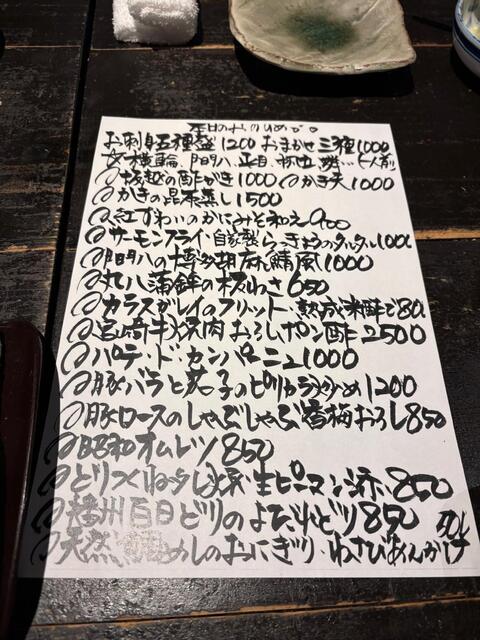 本日のおすすめ
お刺身五種盛1200 おまかせ三種1000
横輪、 蛸…
坂越の酢がき1000 かき天1000
かきの昆布蒸し1500
紅ずわいのかにみそ和え900
サーモンフライ・自家製らっきょうのタルタル1000
の博多胡麻鯖風1000
丸八蒲鉾の板わさ650
カラスガレイのフリット、熟成米酢で800
宮崎牛炙肉おろしポン酢2500
パテ・ド・カンパーニュ1000
豚バラと茄子のピリカラ炒め1200
豚ロースのしゃぶしゃぶ香梅おろし850
昭和オムレツ850
とりつくね 生ピーマン添850
播州百日どりのよだれどり850
天然鯛めしのおにぎり・わさびあんかけ